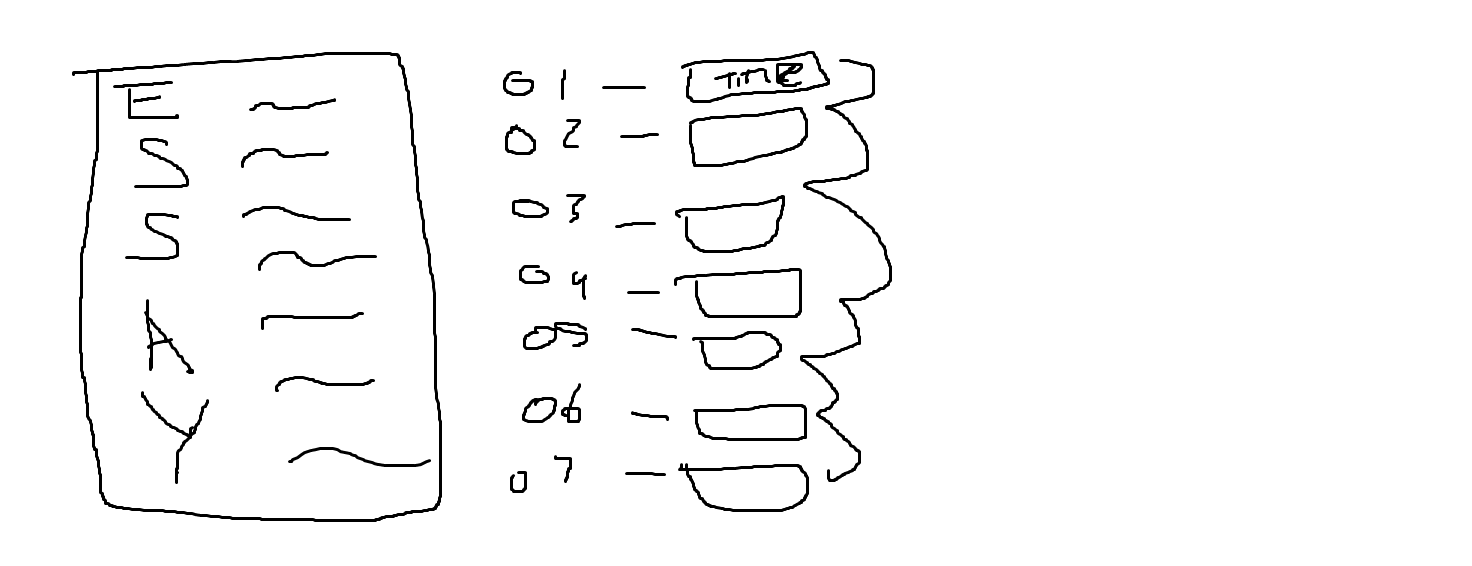 ESSAY
01 — TITLE
02 —
03 —
04 —
05 —
06 —
07 —